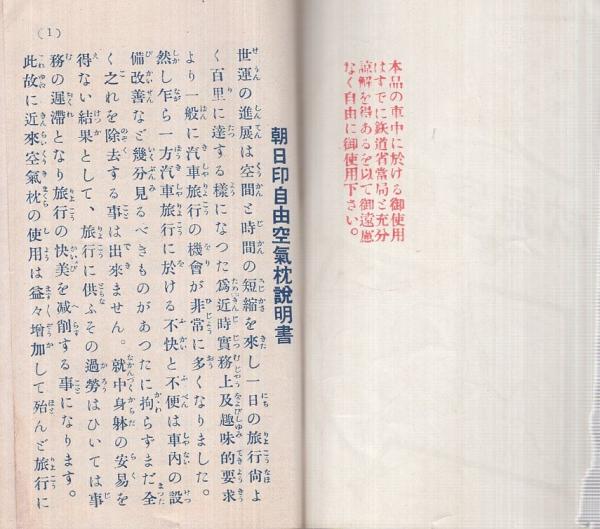 本品の車中に於ける御使用
はすでに鉄道省當局と充分
諒解を得あるを以て御遠慮
なく自由に御使用下さい。
朝日印自由空氣枕說明書
世運の進展は空間と時間の短縮を來し一日の旅行尙よ
く百里に達する樣になつた爲近時實務上及趣味的要求
より一般に汽車旅行の機會が非常に多くなりました。
然し乍ら一方汽車旅行に於ける不快と不便は車內の設
備改善など幾分見るべきものがあつたに拘らずまだ全
く之れを除去する事は出來ません。就中身躰の安易を
得ない結果として、旅行に供ふその過勞はひいては事
務の遲滯となり旅行の快美を減削する事になります。
此故に近來空氣枕の使用は益々增加して殆んど旅行に
(1)